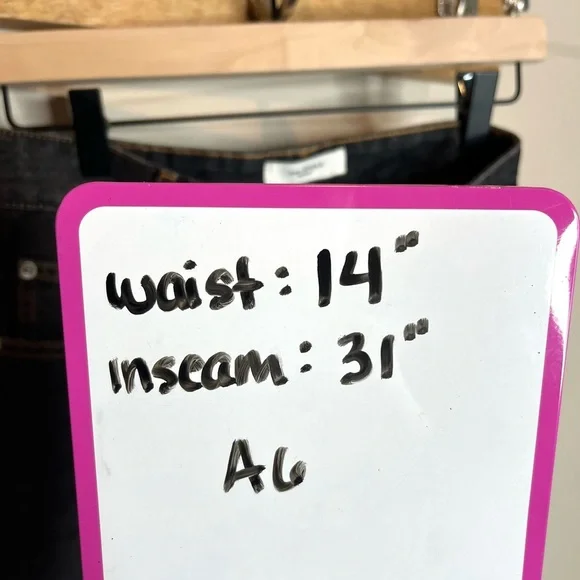 waist: 14"
inseam: 31"
A6